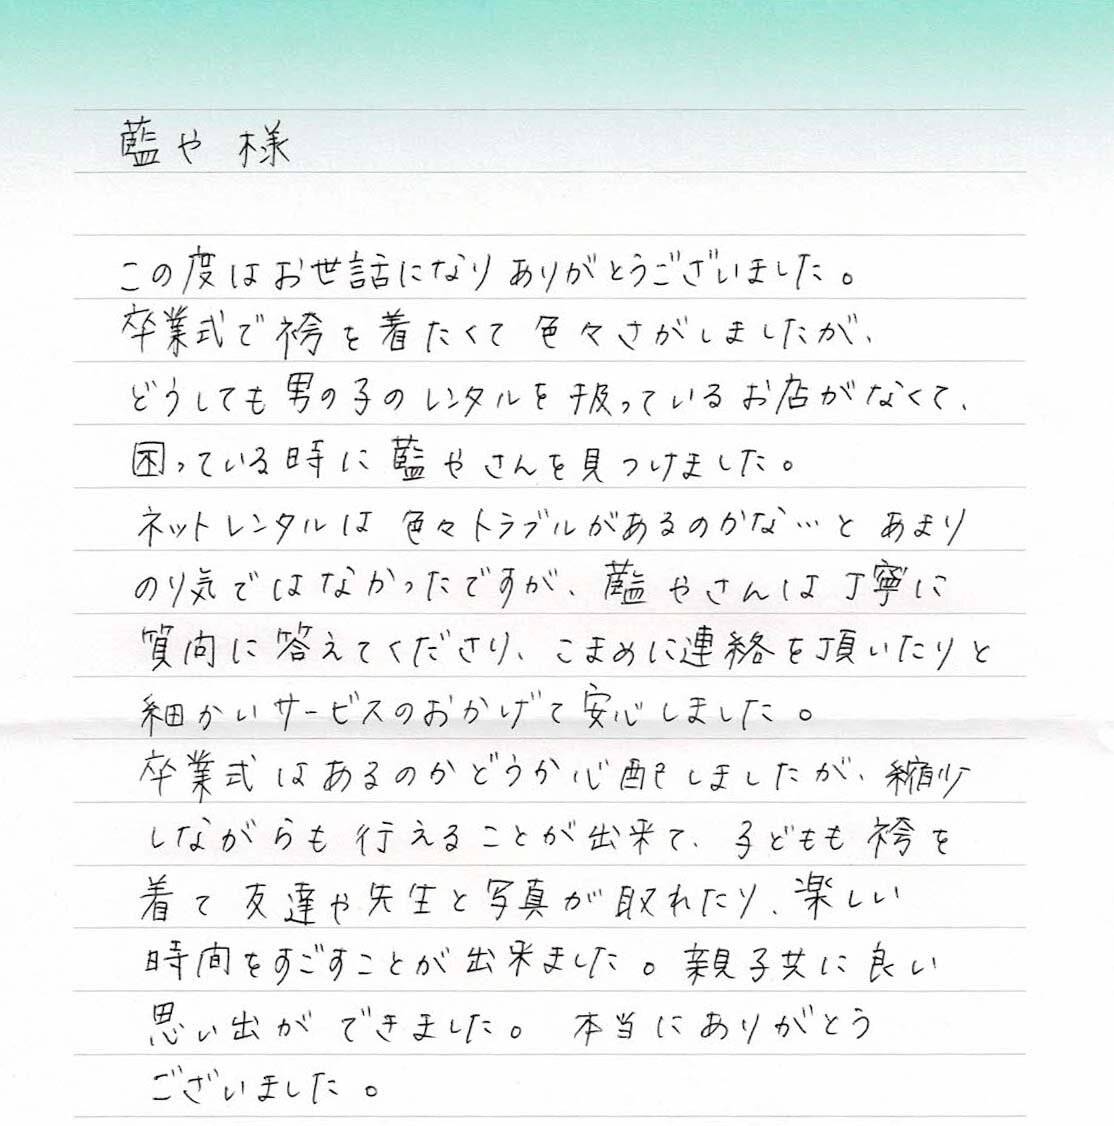 藍や 様
この度はお世話になりありがとうございました。
卒業式で袴を着たくて色々さがしましたが、
どうしても男の子のレンタルを扱っているお店がなくて、
困っている時に藍やさんを見つけました。
ネットレンタルは色々トラブルがあるのかな…とあまり
のり気ではなかったですが、藍やさんは丁寧に
質問に答えてくださり、こまめに連絡を頂いたりと
細かいサービスのおかげで安心しました。
卒業式はあるのかどうか心配しましたが、縮少
しながらも行えることが出来て、子どもも袴を
着て友達や先生と写真が取れたり、楽しい
時間をすごすことが出来ました。親子共に良い
思い出ができました。 本当にありがとう
ございました。